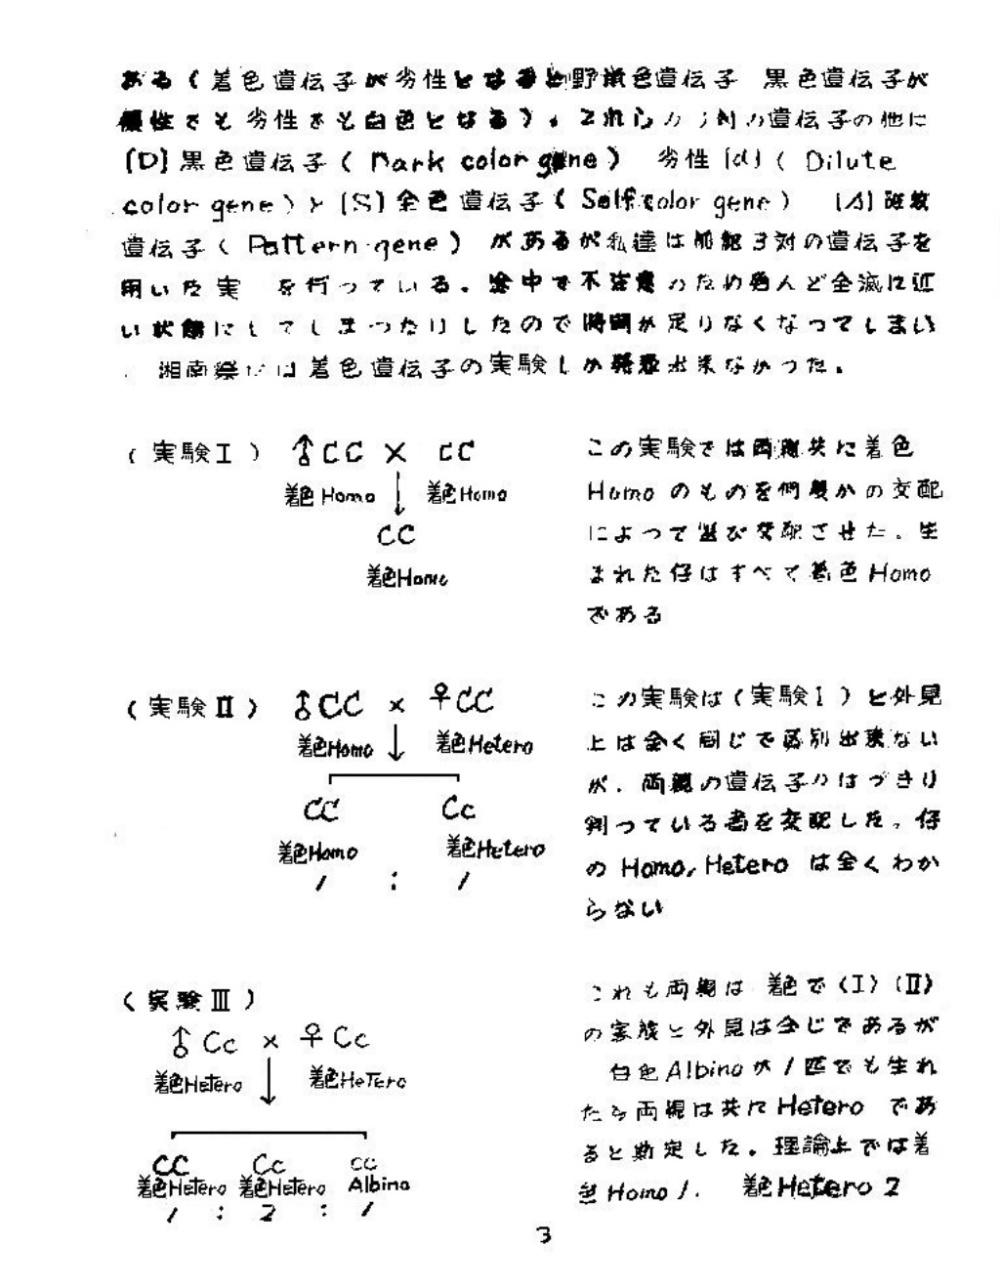 ある(着色遺伝子が劣性となると野鼠色遺伝子 黒色遺伝子が
優性でも劣性でも白色となる)。これらの3対の遺伝子の他に
[D]黒色遺伝子(Dark color gene) 劣性[d](Dilute
color gene)と[S]全色遺伝子(Self color gene) [A]斑紋
遺伝子(Pattern gene)があるが私達は前記3対の遺伝子を
用いた実 を行っている。途中で不注意のため殆んど全滅に近
い状態にしてしまったりしたので時間が足りなくなってしまい
湘南祭には着色遺伝子の実験しか発表出来なかった。
(実験Ⅰ) ♂CC × CC
着色Homo ↓ 着色Homo
CC
着色Homo
この実験では両親共に着色
Homoのものを何度かの交配
によって選び交配させた。生
まれた仔はすべて着色Homo
である
(実験Ⅱ) ♂CC × ♀CC
着色Homo ↓ 着色Hetero
CC Cc
着色Homo 着色Hetero
1 : 1
この実験は(実験Ⅰ)と外見
上は全く同じで区別出来ない
が、両親の遺伝子のはっきり
判っている者を交配した。仔
のHomo, Heteroは全くわか
らない
(実験Ⅲ)
♂Cc × ♀Cc
着色Hetero ↓ 着色HeTero
CC Cc cc
着色Hetero 着色Hetero Albino
1 : 2 : 1
これも両親は 着色で(Ⅰ)(Ⅱ)
の実験と外見は全じであるが
白色Albinoが1匹でも生れ
たら両親は共にHeteroであ
ると断定した。理論上では着
色Homo 1. 着色Hetero 2
3